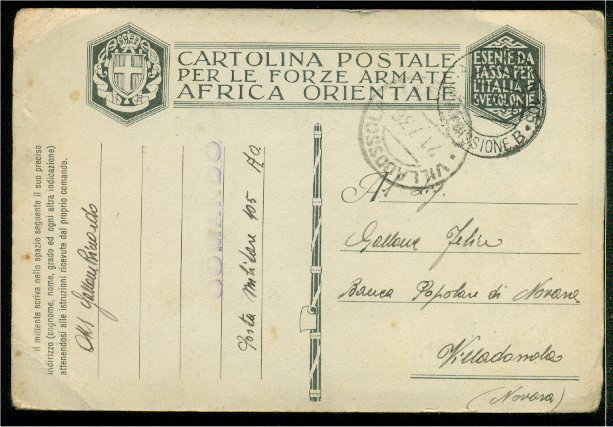 CARTOLINA POSTALE
PER LE FORZE ARMATE
AFRICA ORIENTALE
ESENTE DA
TASSA PER
L'ITALIA
SUE COLONIE
VILLADOSSOLA
il mittente scriva nello spazio seguente il suo preciso
indirizzo (cognome, nome, grado ed ogni altra indicazione)
attenendosi alle istruzioni ricevute dal proprio comando.
Riccardo
Posta militare 105 A.O.
A
Felice
Banca Popolare di Novara
Villadossola
(Novara)